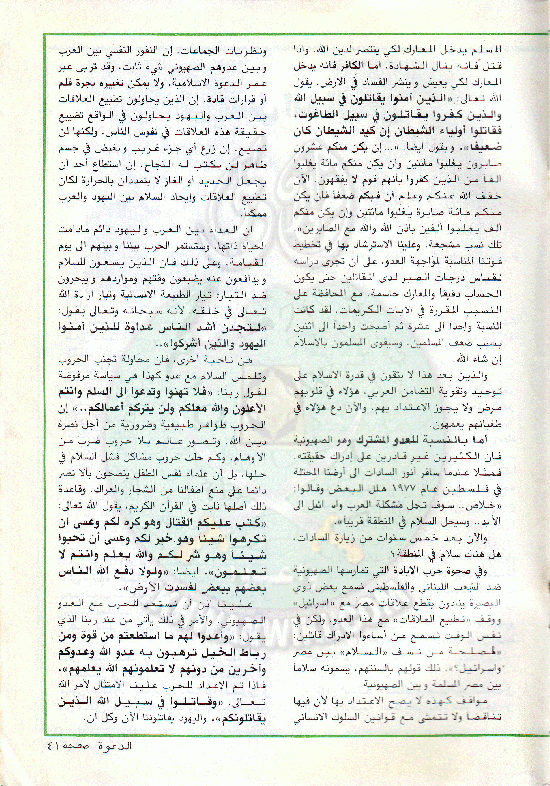 المسلم يدخل المعارك لكي ينتصر لدين الله، وإذا
قتل فانه ينال الشهادة. أما الكافر فانه يدخل
المعارك لكي يعيش وينشر الفساد في الارض. يقول
الله تعالى: «الذين آمنوا يقاتلون في سبيل الله
والذين كفروا يقاتلون في سبيل الطاغوت،
فقاتلوا أولياء الشيطان إن كيد الشيطان كان
ضعيفا». ويقول ايضا: «... إن يكن منكم عشرون
صابرون يغلبوا مائتين وإن يكن منكم مائة يغلبوا
الفا من الذين كفروا بانهم قوم لا يفقهون. الآن
خفف الله عنكم وعلم أن فيكم ضعفا فان يكن
منكم مائة صابرة يغلبوا مائتين وإن يكن منكم
ألف يغلبوا ألفين باذن الله والله مع الصابرين».
تلك نسب مشجعة. وعلينا الاسترشاد بها في تخطيط
قوتنا المناسبة لمواجهة العدو، على أن تجرى دراسة
لقياس درجات الصبر لدى المقاتلين حتى يكون
الحساب دقيقا والمعارك حاسمة، مع المحافظة على
النسب المقررة في الآيات الكريمات. لقد كانت
النسبة واحدا الى عشرة ثم أصبحت واحدا الى اثنين
بسبب ضعف المسلمين. وسيقوى المسلمون بالاسلام
إن شاء الله.
والذين بعد هذا لا يثقون في قدرة الاسلام على
توحيد وتقوية التضامن العربي، هؤلاء في قلوبهم
مرض ولا يجوز الاعتداد بهم. والآن دع هؤلاء في
طغيانهم يعمهون.
أما بالنسبة للعدو المشترك وهو الصهيونية
فان الكثيرين غير قادرين على إدراك حقيقته.
فمثلا عندما سافر أنور السادات الى أرضنا المحتلة
في فلسطين عام ١٩٧٧ هلل البعض وقالوا:
«خلاص.. سوف تحل مشكلة العرب واسرائيل الى
الأبد.. وسيحل السلام في المنطقة قريبا».
والآن بعد خمس سنوات من زيارة السادات،
هل هناك سلام في المنطقة؟
وفي صحوة حرب الابادة التي تمارسها الصهيونية
ضد الشعب اللبناني والفلسطيني نسمع بعض ذوي
البصيرة ينادون بقطع علاقات مصر مع «اسرائيل»
ووقف «تطبيع العلاقات» مع هذا العدو، ولكن في
نفس الوقت نسمع من أساءوا الادراك قائلين:
«فلمصلحة من نسف «السلام» بين مصر
واسرائيل؟». ذلك قولهم بالسنتهم، يسمونه سلاما
بين مصر المسلمة وبين الصهيونية.
مواقف كهذه لا يصح الاعتداد بها لأن فيها
تناقضا ولا تتمشى مع قوانين السلوك الانساني
ونظريات الجماعات. إن النفور النفسي بين العرب
وبين عدوهم الصهيوني شيء ثابت، وقد تربى عبر
عصر الدعوة الاسلامية، ولا يمكن تغييره بجرة قلم
أو قرارات قادة. إن الذين يحاولون تطبيع العلاقات
بين العرب واليهود يحاولون في الواقع تضييع
حقيقة هذه العلاقات في نفوس الناس. ولكنها لن
تضيع. إن زرع أي جزء غريب وبغيض في جسم
طاهر لن يكتب له النجاح. إن استطاع أحد أن
يجعل الحديد أو الغاز لا يتمددان بالحرارة لكان
تطبيع العلاقات وايجاد السلام بين اليهود والعرب
ممكنا.
ان العداء بين العرب واليهود دائم مادامت
الحياة ذاتها. وستستمر الحرب بيننا وبينهم الى يوم
القيامة. وعلى ذلك فان الذين يسعون للسلام
ويدافعون عنه يضيعون وقتهم ومواردهم ويبحرون
ضد التيار: تيار الطبيعة الانسانية وتيار ارادة الله
تعالى في خلقه. لأنه سبحانه وتعالى يقول:
«لتجدن أشد الناس عداوة للذين آمنوا
اليهود والذين أشركوا»..
من ناحية أخرى، فان محاولة تجنب الحروب
وتلمس السلام مع عدو كهذا هي سياسة مرفوضة
لقول ربنا: «فلا تهنوا وتدعوا الى السلم وانتم
الأعلون والله معكم ولن يتركم أعمالكم..» إن
الحروب ظواهر طبيعية وضرورية من أجل نصرة
دين الله. وتصور عالم بلا حروب ضرب من
الأوهام. وكم حلت حروب مشاكل فشل السلام في
حلها. بل أن علماء نفس الطفل ينصحون بألا نصر
دائما على منع اطفالنا من الشجار والعراك. وقاعدة
ذلك أصلها ثابت في القرآن الكريم، يقول الله تعالى:
«كتب عليكم القتال وهو كره لكم وعسى أن
تكرهوا شيئا وهو خير لكم وعسى أن تحبوا
شيئا وهو شر لكم والله يعلم وانتم لا
تعلمون». ايضا: «ولولا دفع الله الناس
بعضهم ببعض لفسدت الأرض».
علينا إذن أن نستعد للحرب مع العدو
الصهيوني. والأمر في ذلك يأتي من عند ربنا الذي
يقول: «وأعدوا لهم ما استطعتم من قوة ومن
رباط الخيل ترهبون به عدو الله وعدوكم
وآخرين من دونهم لا تعلمونهم الله يعلمهم».
فاذا تم الاعداد للحرب علينا الامتثال لأمر الله
تعالى: «وقاتلوا في سبيل الله الذين
يقاتلونكم». واليهود يقاتلوننا الآن وكل آن.
الدعوة صفحة ٤١